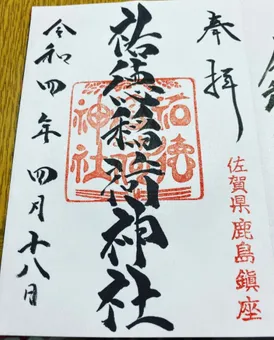 奉拝
佐賀県鹿島鎮座
祐徳稲荷神社
令和四年四月十八日
祐徳
神社